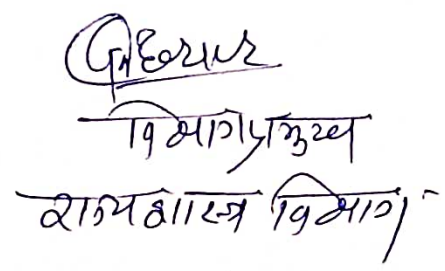 विभागप्रमुख
राज्यशास्त्र विभाग